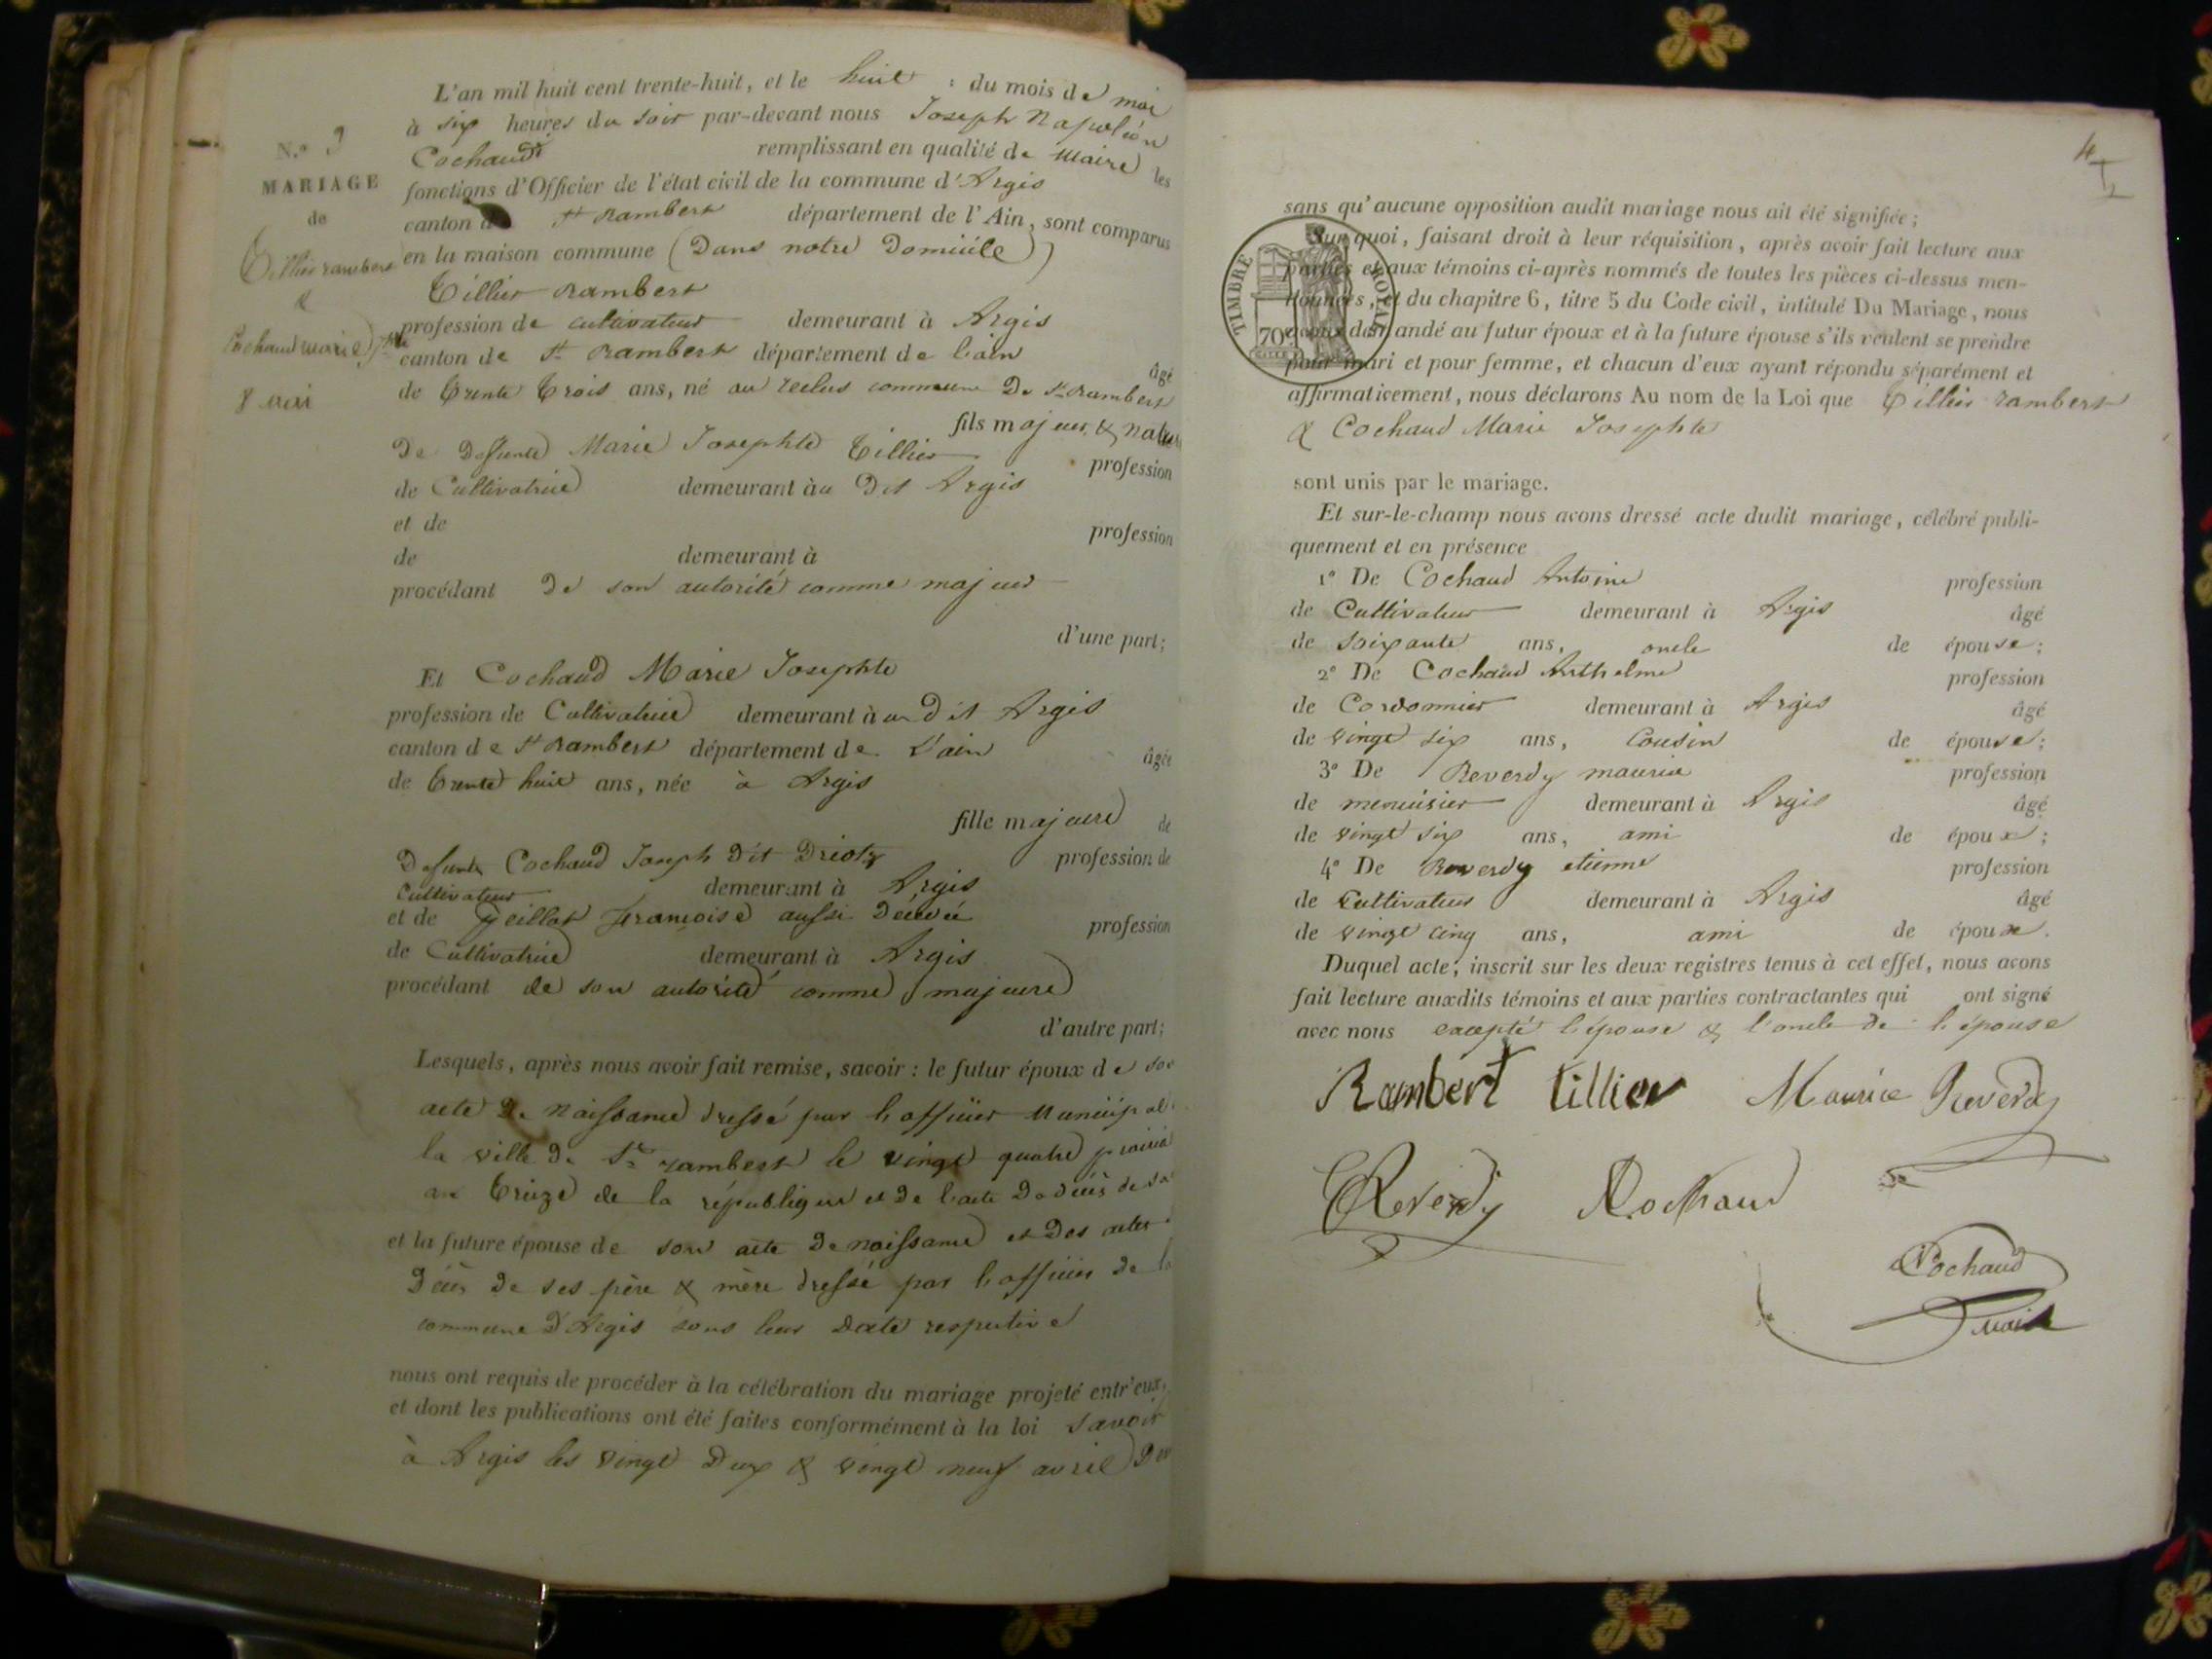 L'an mil huit cent trente-huit, et le huit du mois de mai
à six heures du soir par-devant nous Joseph Napoléon
Cochaud remplissant en qualité de Maire les
fonctions d'Officier de l'état civil de la commune d'Argis
canton de St Rambert département de l'Ain, sont comparus
en la maison commune (Dans notre Domicile)
Tillier Rambert
profession de cultivateur demeurant à Argis
canton de St Rambert département de l'ain âgé
de trente trois ans, né au reclus commune De St Rambert
fils majeur & natu
De Defunte Marie Josephte Tillier profession
de Cultivatrice demeurant àu Dit Argis
et de profession
de demeurant à
procédant De son autorité comme majeur
d'une part;
Et Cochaud Marie Josephte
profession de Cultivatrice demeurant à au Dit Argis
canton de St Rambert département de L'ain âgée
de trente huit ans, née à Argis
fille majeure de
Defunts Cochaud Joseph Dit profession de
Cultivateur demeurant à Argis
et de Françoise aussi Décédée profession
de Cultivatrice demeurant à Argis
procédant de son autorité comme majeure
d'autre part;
Lesquels, après nous avoir fait remise, savoir : le futur époux de son
acte De Naissance dressé par l'officier Municipal
la ville De St rambert le vingt quatre prairial
an treize de la république et De l'acte De décès de sa
et la future épouse de son acte De naissance et Des actes
Décès De ses père & mère dressé par l'officier De la
commune D'Argis sous leur Date respective
nous ont requis de procéder à la célébration du mariage projeté entr'eux,
et dont les publications ont été faites conformément à la loi Savoir
à Argis les vingt Deux & vingt neuf avril
N.º 9
MARIAGE
de
Tillier rambert
&
Cochaud marie Jphte
8 mai
4
sans qu'aucune opposition audit mariage nous ait été signifiée;
Sur quoi, faisant droit à leur réquisition, après avoir fait lecture aux
parties et aux témoins ci-après nommés de toutes les pièces ci-dessus men-
tionnées, et du chapitre 6, titre 5 du Code civil, intitulé Du Mariage, nous
avons demandé au futur époux et à la future épouse s'ils veulent se prendre
pour mari et pour femme, et chacun d'eux ayant répondu séparément et
affirmativement, nous déclarons Au nom de la Loi que Tillier rambert
& Cochaud Marie Josephte
sont unis par le mariage.
TIMBRE ROYAL
70 c
Et sur-le-champ nous avons dressé acte dudit mariage, célébré publi-
quement et en présence
1º De Cochaud Antoine profession
de Cultivateur demeurant à Argis âgé
de soixante ans, oncle de épouse;
2º De Cochaud Anthelme profession
de Cordonnier demeurant à Argis âgé
de vingt six ans, Cousin de épouse;
3º De Reverdy maurice profession
de menuisier demeurant à Argis âgé
de vingt six ans, ami de époux;
4º De Reverdy etienne profession
de Cultivateur demeurant à Argis âgé
de vingt cinq ans, ami de époux.
Duquel acte, inscrit sur les deux registres tenus à cet effet, nous avons
fait lecture auxdits témoins et aux parties contractantes qui ont signé
avec nous excepté l'épouse & l'oncle de l'épouse
Rambert tillier Maurice Reverdy
Reverdy Cochaud
Cochaud
maire